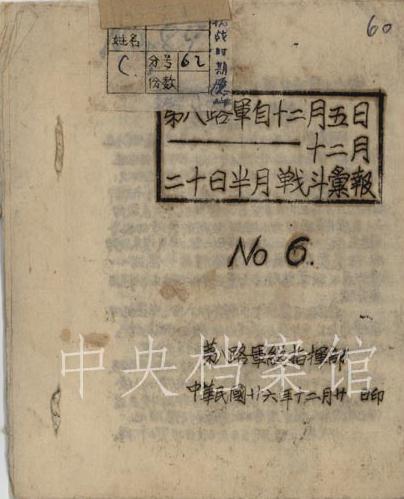 60
姓名
C
分号 62
份数
抗战时期
第八路軍自十二月五日
——十二月
二十日半月戦斗彙報
No 6.
中央档案馆
第八路軍總指揮部
中華民國廿六年十二月廿 日印